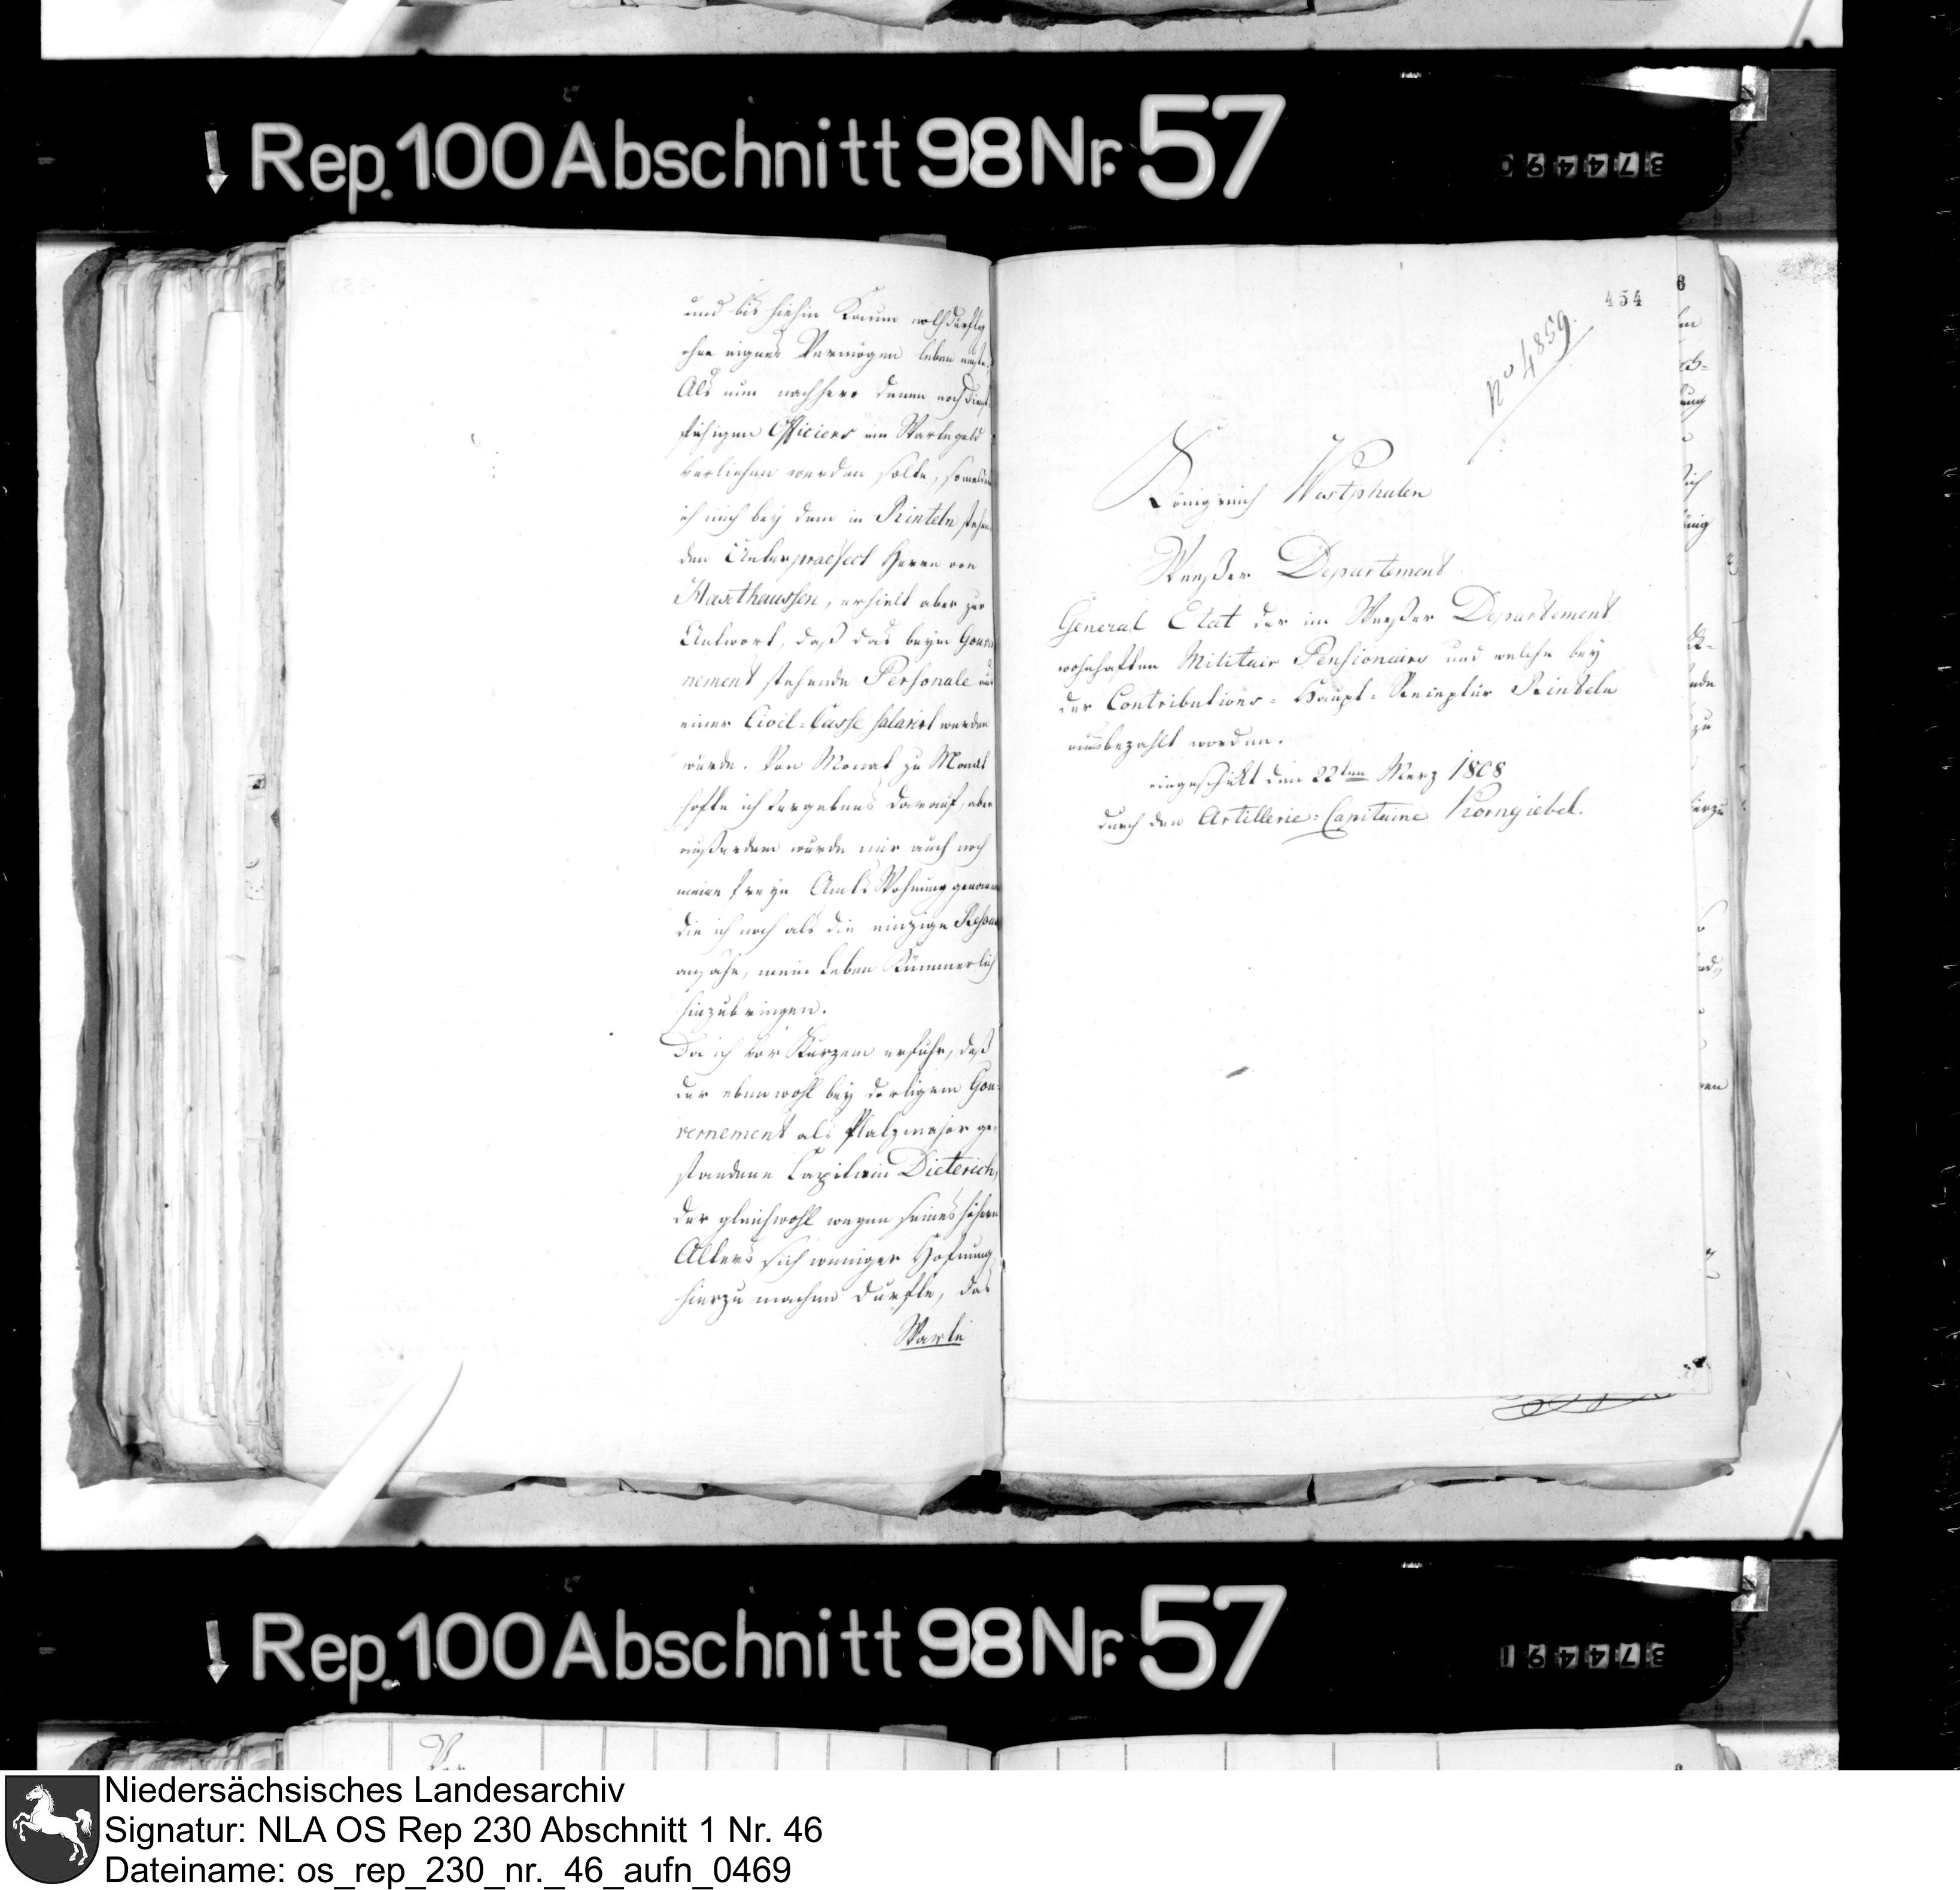 Rep. 100 Abschnitt 98 Nr. 57
374490
und bis hiehin kaum nothdürftig
ohne eignes Vermögen leben mußte.
Als nun nachhero denen noch dienst-
fähigen Officiers ein Wartegeld
verliehen werden solte, so meldete
ich mich bey dem in Rinteln stehen-
den Unterpraefect Herrn von
Haxthaussen, erhielt aber zur
Antwort, daß das beym Gouver
nement stehende Personale aus
einer Civil-Casse salarirt werden
würde. Von Monat zu Monat
hofte ich vergebens darauf, aber
außerdem wurde mir auch noch
meine freye Amts Wohnung genommen
die ich noch als die einzige
ansahe, mein Leben Kümmerlich
hinzubringen.
Da ich vor Kurzem erfuhr, daß
der ebenwohl bey dortigem Gou-
vernement als Platzmajor ge-
standene Capitain Dieterich,
der gleichwohl wegen seines höhern
Alters sich weniger Hofnung
hierzu machen durfte, das
Warte
454
No 4859
Königreich Westphalen
Weeßer Departement
General Etat der im Weeßer Departement
wohnhaften Militair Pensionairs und welche bey
der Contributions-Haupt-Receptur Rinteln
ausbezahlt worden.
eingeschikt den 22ten Merz 1808
durch den Artillerie-Capitaine Korngiebel.
Rep. 100 Abschnitt 98 Nr. 57
374491
Niedersächsisches Landesarchiv
Signatur: NLA OS Rep 230 Abschnitt 1 Nr. 46
Dateiname: os_rep_230_nr._46_aufn_0469